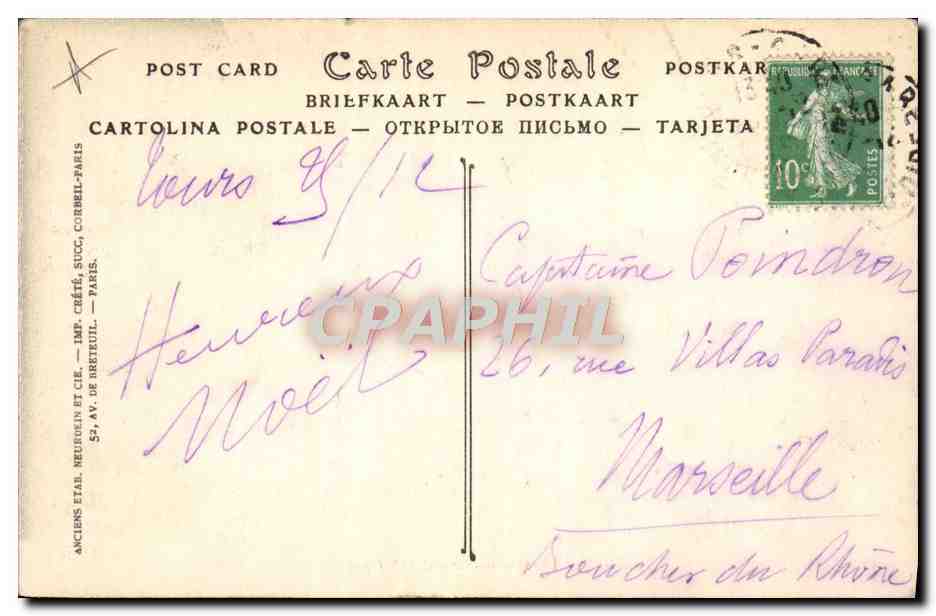 POST CARD Carte Postale POSTKAR
BRIEFKAART — POSTKAART
CARTOLINA POSTALE — ОТКРЫТОЕ ПИСЬМО — TARJETA
REPUBLIQUE FRANÇAISE
10c
POSTES
ANCIENS ETAB. NEURDEIN ET CIE. — IMP. CRÉTÉ, SUCC, CORBEIL-PARIS
52, AV. DE BRETEUIL. — PARIS.
Tours 25/12
Heureux
Noël
Capitaine Poindron
26, rue Villas Paradis
Marseille
Bouches du Rhône
CPAPHIL